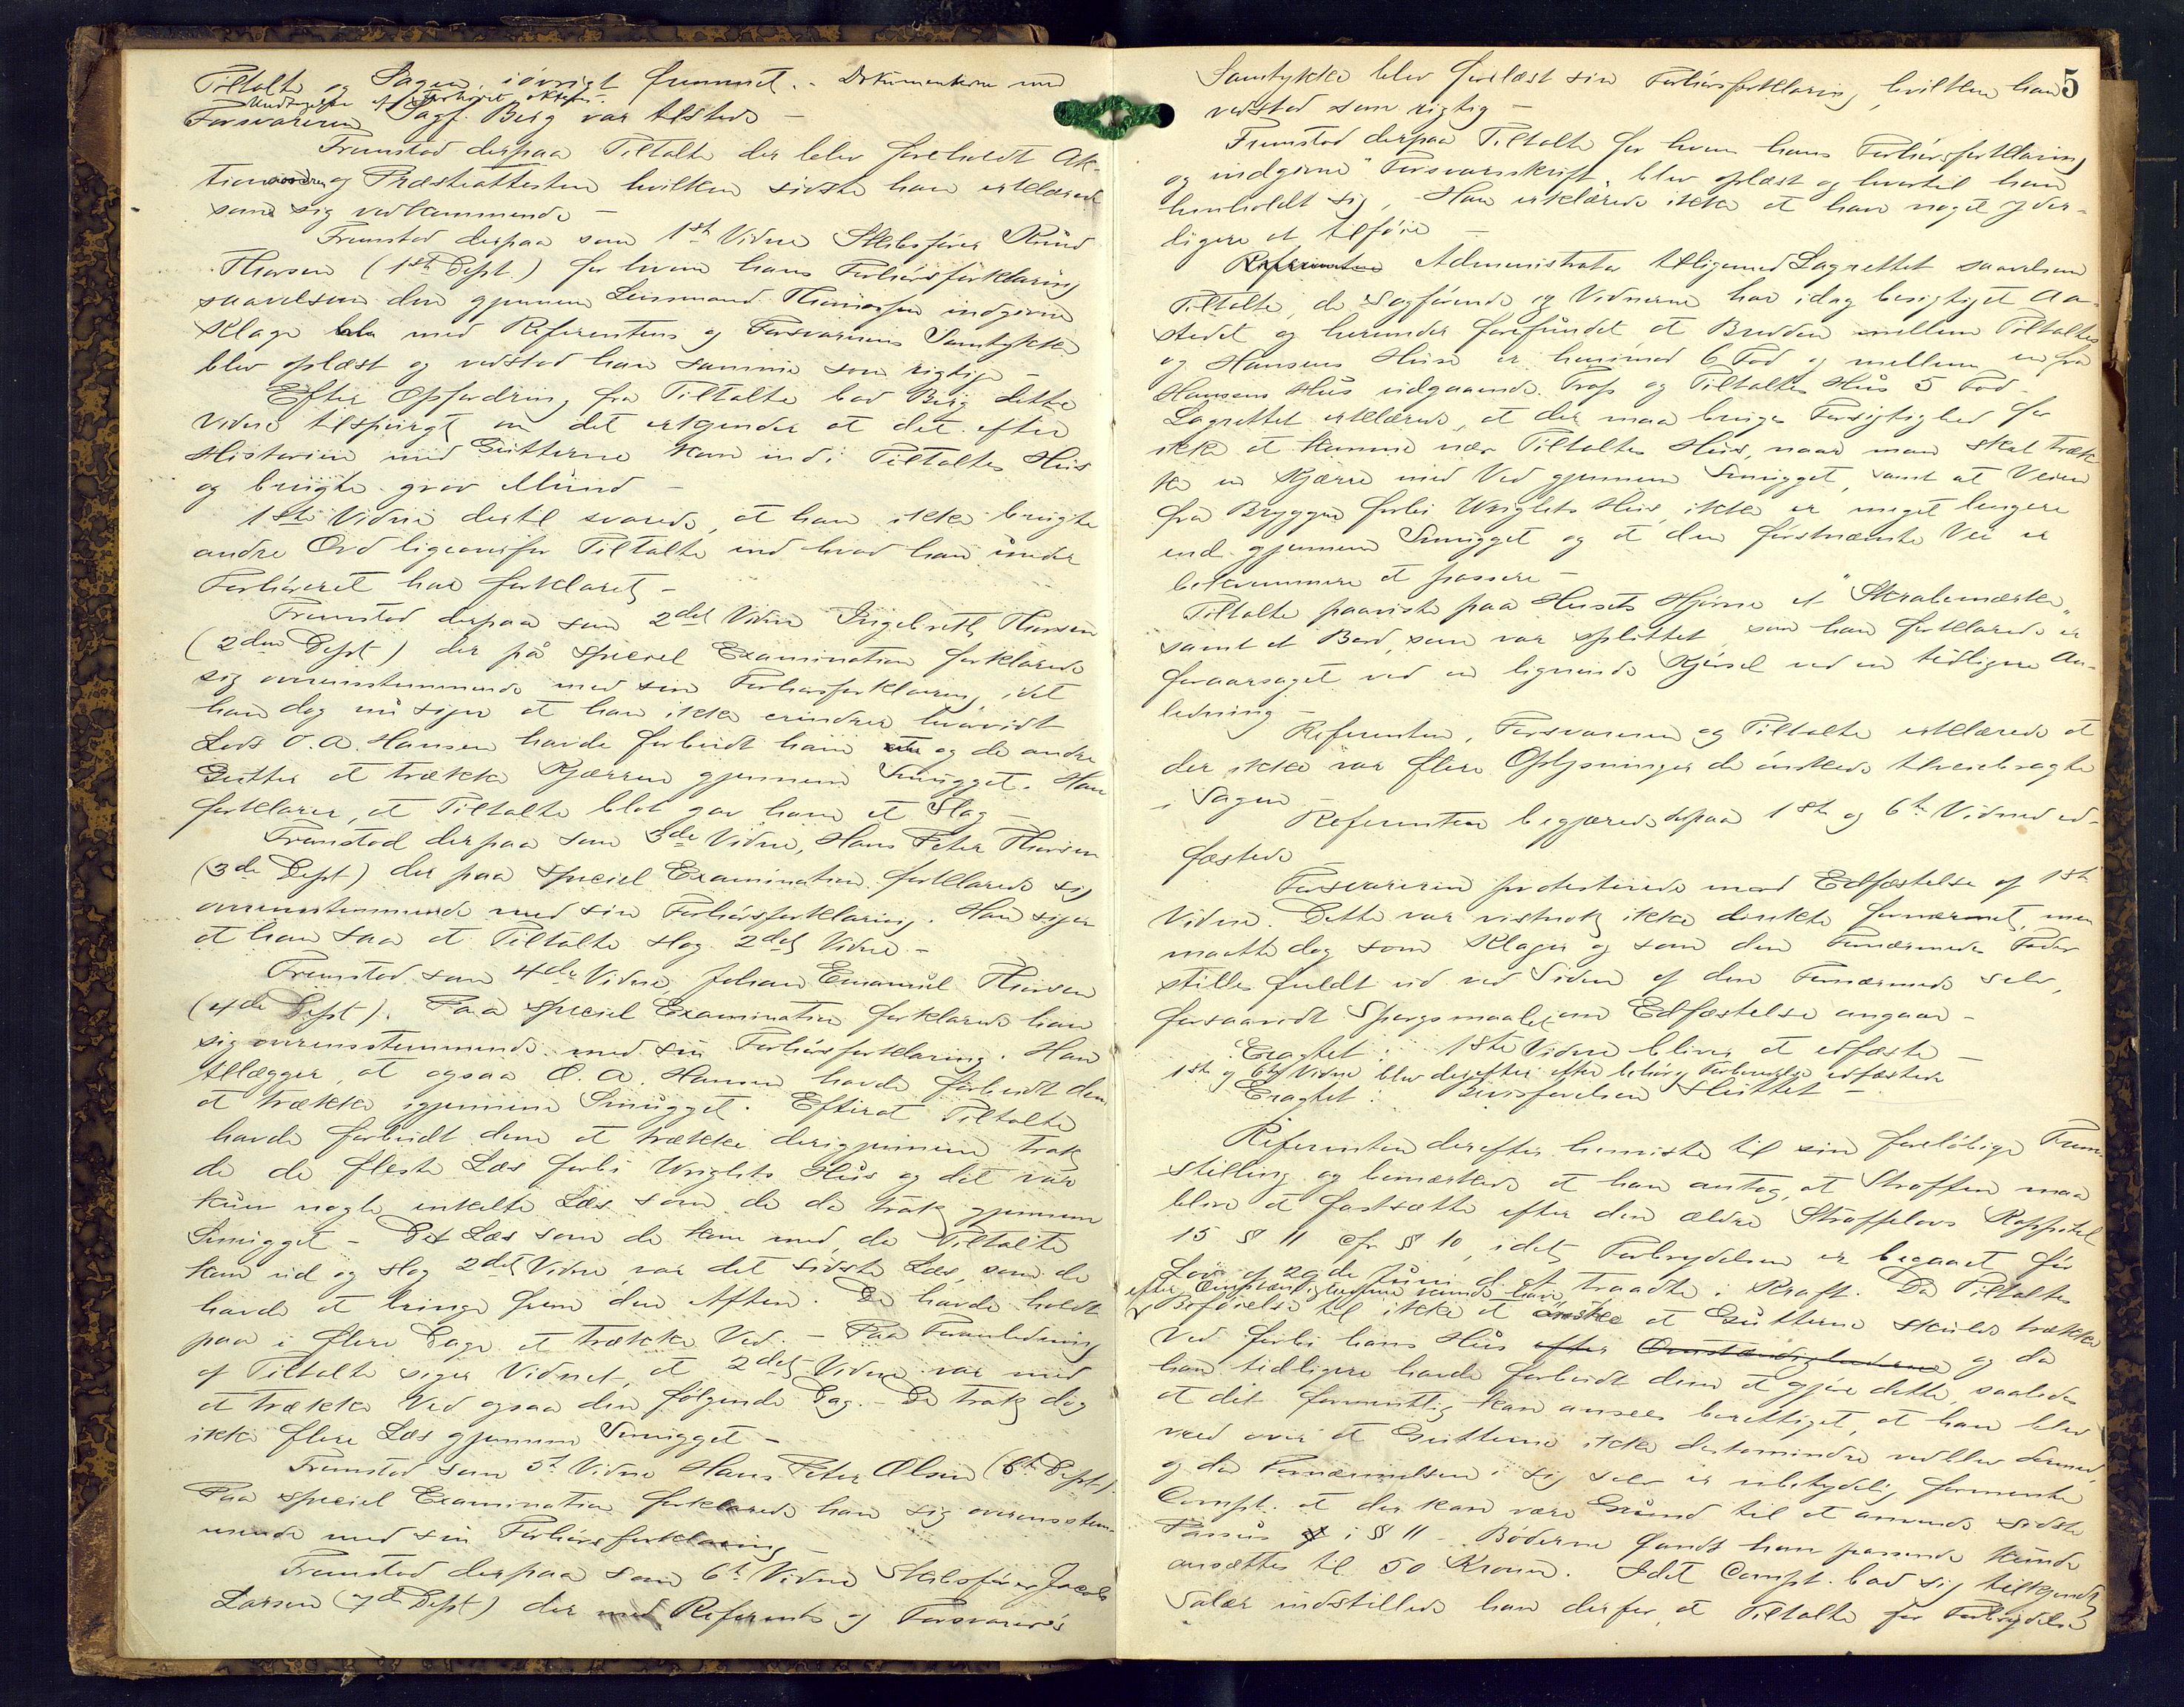 Tiltalte og Sagen iøvrigt fremmet. - Dokumenterne med
Undtagelse af Forhøret oplæst.
Forsvareren Sagf. Berg var tilstede -
Fremstod derpaa Tiltalte der blev foreholdt Ak-
tionsordren og Præsteattesten hvilken sidste han erklærede
som sig vedkommende -
Fremstod derpaa som 1ste Vidne Skibsfører Knud
Thorsen (1ste Dept.) for hvem hans Forhørsforklaring
saavelsom den gjennem Lensmand indgivne
Klage med Referentens og Forsvarerens Samtykke
blev oplæst og vedstod han samme som rigtige -
Efter Opfordring fra Tiltalte bad Berg dette
Vidne tilspurgt om det erkjender at det efter
Historien med Gutterne kom ind i Tiltaltes Hus
og brugte grov Mund -
1ste Vidne dertil svarede, at han ikke brugte
andre Ord ligeoverfor Tiltalte end hvad han under
Forhøret har forklaret -
Fremstod derpaa som 2det Vidne Ingebreth Thorsen
(2den Dept) der på speciel Examination forklarede
sig overensstemmende med sin Forhørsforklaring, idet
han dog nu siger at han ikke erindrer hvorvidt
Lods O. A. Hansen havde forbudt ham og de andre
Gutter at trække Kjærren gjennem Smugget. Han
forklarer, at Tiltalte blot gav ham et Slag -
Fremstod derpaa som 3die Vidne, Hans Peter Thorsen
(3de Dept) der paa speciel Examination forklarede sig
overensstemmende med sin Forhørsforklaring. Han siger
at han saa at Tiltalte slog 2det Vidne -
Fremstod som 4de Vidne, Johan Emanuel Thorsen
(4de Dept). Paa speciel Examination forklarede han
sig overensstemmende med sin Forhørsforklaring. Han
tillægger, at ogsaa O. A. Hansen havde forbudt dem
at trække igjennem Smugget. Efterat Tiltalte
havde forbudt dem at trække derigjennem trak
de de fleste Læs forbi Wrights Hus og det var
kun nogle enkelte Læs som de da trak gjennem
Smugget - Det Læs som de kom med, da Tiltalte
kom ud og slog 2det Vidne var det sidste Læs, som de
havde at bringe frem den Aften. De havde holdt
paa i flere Dage at trække Ved. - Paa Foranledning
af Tiltalte siger Vidnet, at 2det Vidne var med
at trække Ved ogsaa den følgende Dag. - De trak dog
ikke flere Læs gjennem Smugget -
Fremstod som 5te Vidne Hans Peter Olsen (6te Dept).
Paa speciel Examination forklarede han sig overensstem-
mende med sin Forhørsforklaring -
Fremstod derpaa som 6te Vidne Skibsfører Jacob
Larsen (7de Dept) der med Referents og Forsvarers
5
Samtykke blev forelæst sin Forhørsforklaring, hvilken han
vedstod som rigtig -
Fremstod derpaa Tiltalte for hvem hans Forhørsforklaring
og indgivne Forsvarsskrift blev oplæst og hvortil han
henholdt sig. - Han erklærede ikke at have noget yder-
ligere at tilføie -
Referenten Administrator tilligemed Lagrettet saavelsom
Tiltalte, de Sagførende og Vidnerne har idag besigtiget Aa-
stedet og herunder forefundet at Bredden mellem Tiltaltes
og Hansens Huse er henimod 6 Fod og mellem en fra
Hansens Hus udgaaende Trap og Tiltaltes Hus 5 Fod -
Lagrettet erklærede, at der maa bruges Forsigtighed for
ikke at komme nær Tiltaltes Hus, naar man skal træk-
ke en Kjærre med Ved gjennem Smugget, samt at Veien
fra Bryggen forbi Wrights Hus, ikke er meget længere
end gjennem Smugget og at den førstnævnte Vei er
bekvemmere at passere -
Tiltalte paaviste paa Husets Hjørne et "Skrabemærke"
samt et Bord, som var splittet, som han forklarede er
foraarsaget ved en lignende Kjørsel ved en tidligere An-
ledning -
Referenten, Forsvareren og Tiltalte erklærede at
der ikke var flere Oplysninger de ønskede tilveiebragte
i Sagen -
Referenten begjærede derpaa 1ste og 6te Vidne ed-
fæstede -
Forsvareren protesterede mod Edfæstelse af 1ste
Vidne. Dette var vistnok ikke direkte fornærmet, men
maatte dog som Klager og som den Fornærmedes Fader
stilles fuldt ud ved Siden af den Fornærmede selv,
forsaavidt Spørgsmaalet om Edfæstelse angaar -
Eragtet: 1ste Vidne bliver at edfæste -
1ste og 6te Vidne blev derefter efter behørig Forberedelse edfæstede
Eragtet: Bevisførelsen sluttet -
Referenten derefter henviste til sin foreløbige Frem-
stilling og bemærkede at han antog, at Straffen maa
blive at fastsætte efter den ældre Straffelovs Kappitel
15 § 11 cfr § 10, idet Forbrydelsen er begaaet før
Lov af 29de Juni d. A. traadte i Kraft. Da Tiltalte
efter Omstændighederne kunde have
Beføielse til ikke at ønske at Gutterne skulde trække
Ved forbi hans Hus efter Omstændighederne og da
han tidligere havde forbudt dem at gjøre dette, saaledes
at det formentlig kan ansees berettiget, at han blev
vred over at Gutterne ikke destomindre vedblev dermed,
og da Fornærmelsen i sig selv er ubetydelig formente
Compt. at der kan være Grund til at anvende sidste
Passus i § 11 - Bøderne fandt han passende kunde
ansættes til 50 Kroner. Idet Compt. bad sig tilkjendt
Salær indstillede han derfor, at Tiltalte for Forbrydelse